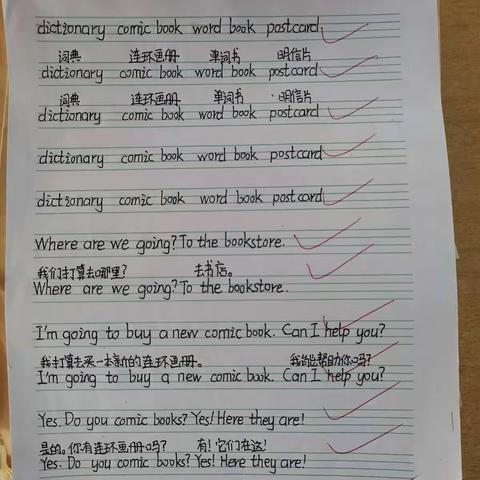 dictionary comic book word book postcard
词典 连环画册 单词书 明信片
dictionary comic book word book postcard
词典 连环画册 单词书 明信片
dictionary comic book word book postcard
dictionary comic book word book postcard
dictionary comic book word book postcard
Where are we going? To the bookstore.
我们打算去哪里? 去书店。
Where are we going? To the bookstore.
I'm going to buy a new comic book. Can I help you?
我打算去买一本新的连环画册。 我能帮助你吗?
I'm going to buy a new comic book. Can I help you?
Yes. Do you comic books? Yes! Here they are!
是的。你有连环画册吗? 有! 它们在这!
Yes. Do you comic books? Yes! Here they are!